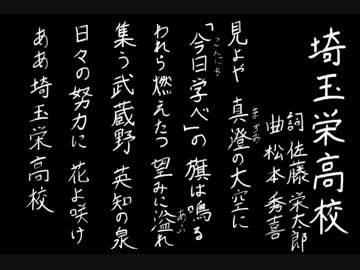 埼玉栄高校
詞 佐藤 栄太郎
曲 松本 秀喜
見よや 真澄の大空に
「今日学べ」の 旗は鳴る
われら燃えたつ 望みに溢れ
集う武蔵野 英知の泉
日々の努力に 花よ咲け
ああ埼玉栄高校
ますみ
こんにち
あふ